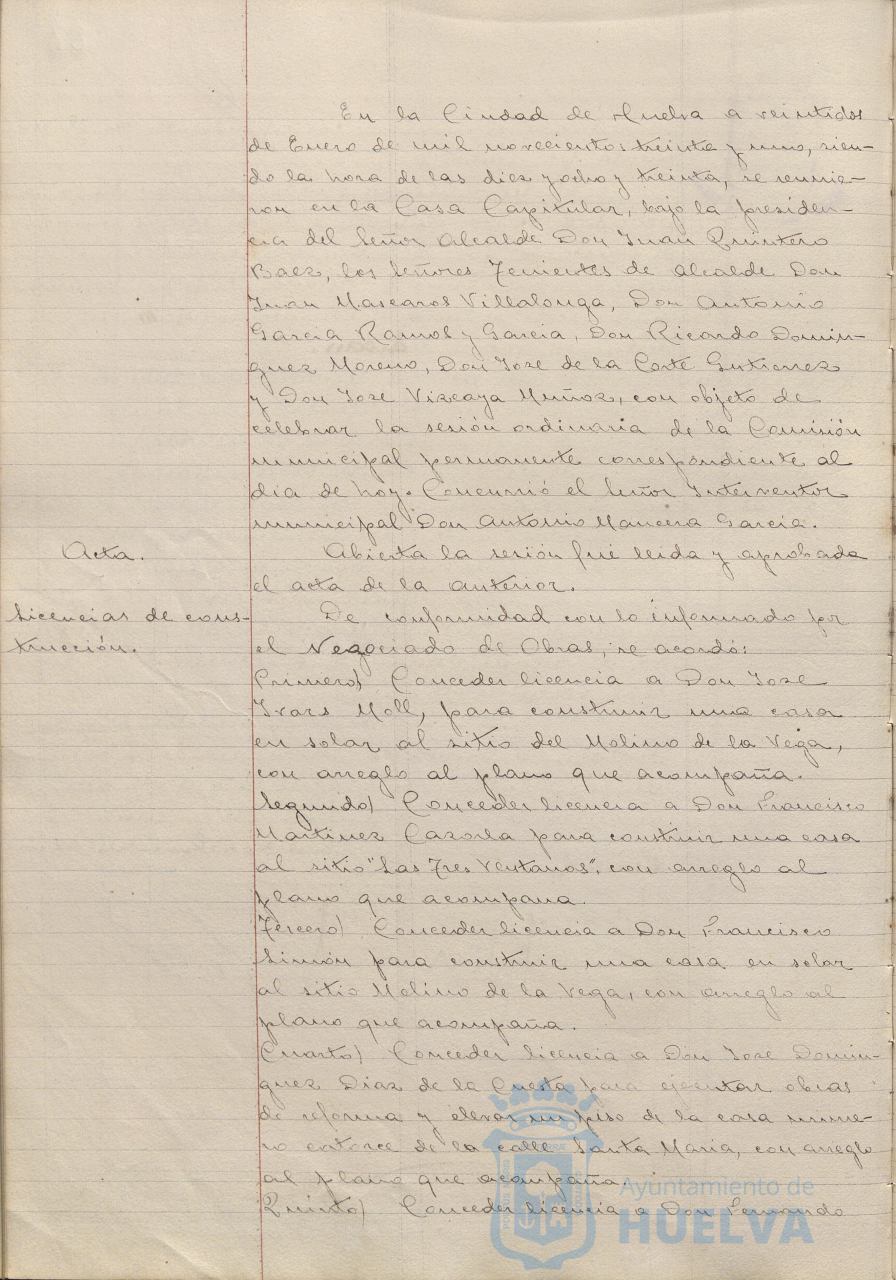 En la Ciudad de Huelva a veintidos
de Enero de mil novecientos treinta y uno, sien-
do la hora de las diez y ocho y treinta, se reunie-
ron en la Casa Capitular, bajo la presiden-
cia del Señor Alcalde Don Juan Quintero
Baez, los Señores Tenientes de Alcalde Don
Juan Mascaros Villalonga, Don Antonio
Garcia Ramos y Garcia, Don Ricardo Domin-
guez Moreno, Don Jose de la Corte Gutierrez
y Don Jose Vizcaya Muñoz, con objeto de
celebrar la sesión ordinaria de la Comisión
municipal permanente correspondiente al
dia de hoy. Concurrió el Señor Interventor
municipal Don Antonio Mancera Garcia.
Acta.
Abierta la sesión fué leida y aprobada
el acta de la anterior.
Licencias de cons-
trucción.
De conformidad con lo informado por
el Negociado de Obras, se acordó:
Primero) Conceder licencia a Don Jose
Ivars Moll, para construir una casa
en solar al sitio del Molino de la Vega,
con arreglo al plano que acompaña.
Segundo) Conceder licencia a Don Francisco
Martinez Cazorla para construir una casa
al sitio "Las Tres Ventanas", con arreglo al
plano que acompana.
Tercero) Conceder licencia a Don Francisco
Simón para construir una casa en solar
al sitio Molino de la Vega, con arreglo al
plano que acompaña.
Cuarto) Conceder licencia a Don Jose Domin-
guez Diaz de la Cuesta para ejecutar obras
de reforma y elevar un piso de la casa nume-
ro catorce de la calle Santa Maria, con arreglo
al plano que acompaña.
Quinto) Conceder licencia a Don Fernando
Ayuntamiento de
HUELVA